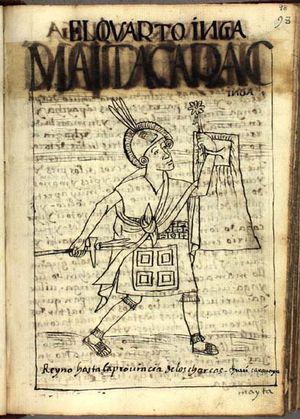 98
98
EL QVARTO INGA
MAITA CAPAC
INGA
Reyno hasta la prouincia de los charcas
mayta